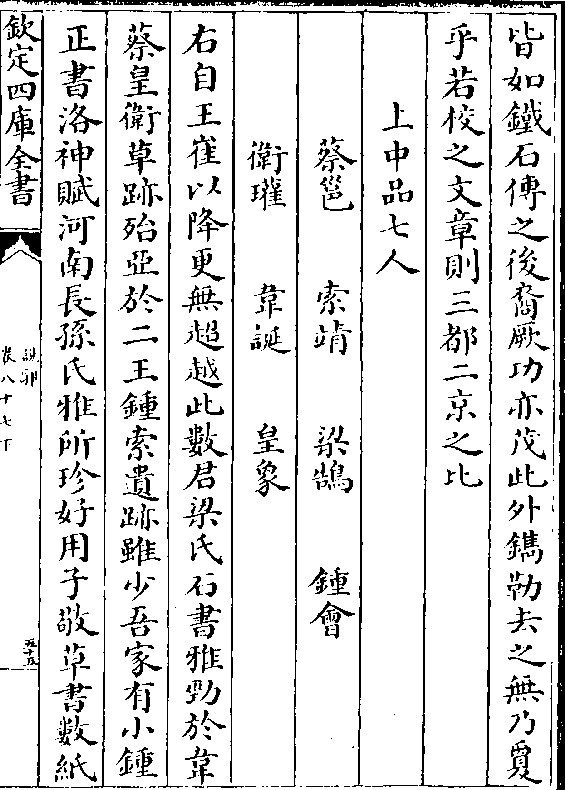 皆如鐵石傳之後裔厥功亦茂此外鐫勒去之無乃敻
乎若校之文章則三都二京之比
上中品七人
蔡邕 索靖 梁鵠 鍾會
衛瓘 韋誕 皇象
右自王崔以降更無超越此數君梁氏石書雅勁於韋
蔡皇衛草跡殆亞於二王鍾索遺跡雖少吾家有小鍾
正書洛神賦河南長孫氏雅所珍好用子敬草書數紙
欽定四庫全書
說郛
卷八十七下
五十五